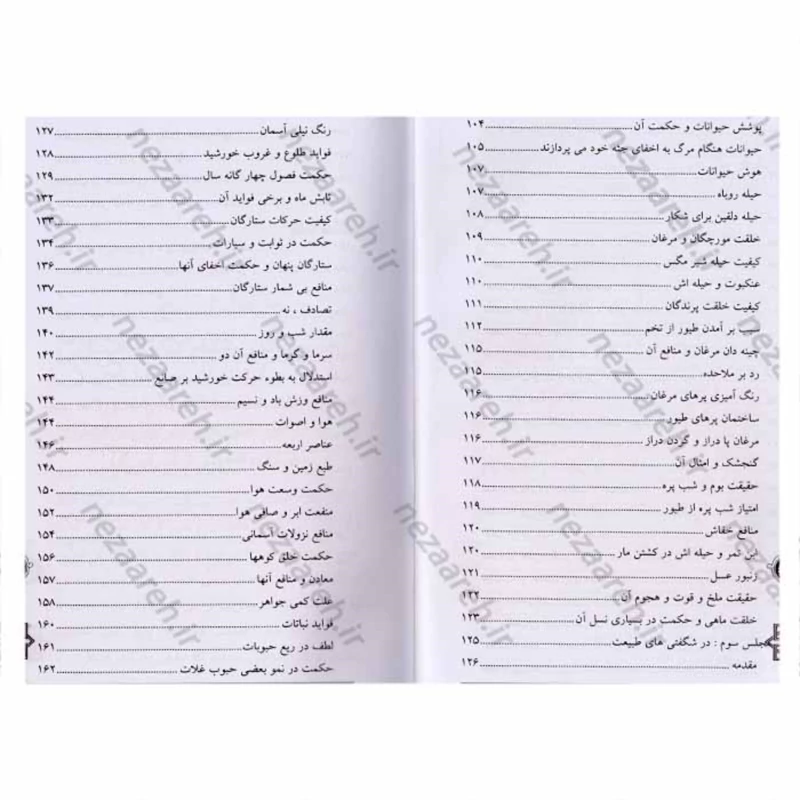 پوشش حیوانات و حکمت آن ۱۰۴
حیوانات هنگام مرگ به اخفای جثه خود می پردازند ۱۰۵
هوش حیوانات ۱۰۷
حیله روباه ۱۰۷
حیله دلفین برای شکار ۱۰۸
خلقت مورچگان و مرغان ۱۰۹
کیفیت حیله شیر مگس ۱۱۰
عنکبوت و حیله اش ۱۱۰
کیفیت خلقت پرندگان ۱۱۱
سبب بر آمدن طیور از تخم ۱۱۲
چینه دان مرغان و منافع آن ۱۱۵
رد بر ملاحده ۱۱۵
رنگ آمیزی پرهای مرغان ۱۱۶
ساختمان پرهای طیور ۱۱۶
مرغان پا دراز و گردن دراز ۱۱۶
گنجشک و امثال آن ۱۱۷
حقیقت بوم و شب پره ۱۱۸
امتیاز شب پره از طیور ۱۱۹
منافع خفاش ۱۲۰
ابن تمر و حیله اش در کشتن مار ۱۲۰
زنبور عسل ۱۲۱
حقیقت ملخ و قوت و هجوم آن ۱۲۲
خلقت ماهی و حکمت در بسیاری نسل آن ۱۲۳
مجلس سوم : در شگفتی های طبیعت ۱۲۵
مقدمه ۱۲۶
رنگ نیلی آسمان ۱۲۷
فواید طلوع و غروب خورشید ۱۲۸
حکمت فصول چهار گانه سال ۱۲۹
تابش ماه و برخی فواید آن ۱۳۲
کیفیت حرکات ستارگان ۱۳۳
حکمت در ثوابت و سیارات ۱۳۴
ستارگان پنهان و حکمت اخفای آنها ۱۳۶
منافع بی شمار ستارگان ۱۳۷
تصادف ، نه ۱۳۹
مقدار شب و روز ۱۴۰
سرما و گرما و منافع آن دو ۱۴۲
استدلال به بطوء حرکت خورشید بر صانع ۱۴۳
منافع وزش باد و نسیم ۱۴۴
هوا و اصوات ۱۴۴
عناصر اربعه ۱۴۶
طبع زمین و سنگ ۱۴۸
حکمت وسعت هوا ۱۵۰
منفعت ابر و صافی هوا ۱۵۲
منافع نزولات آسمانی ۱۵۴
حکمت خلق کوهها ۱۵۶
معادن و منافع آنها ۱۵۷
علت کمی جواهر ۱۵۸
فواید نباتات ۱۶۰
لطف در ریع حبوبات ۱۶۱
حکمت در نمو بعضی حبوب غلات ۱۶۲
nezaareh.ir
nezaareh.ir
nezaareh.ir
nezaareh.ir
nezaareh.ir
nezaareh.ir
nezaareh.ir
nezaareh.ir